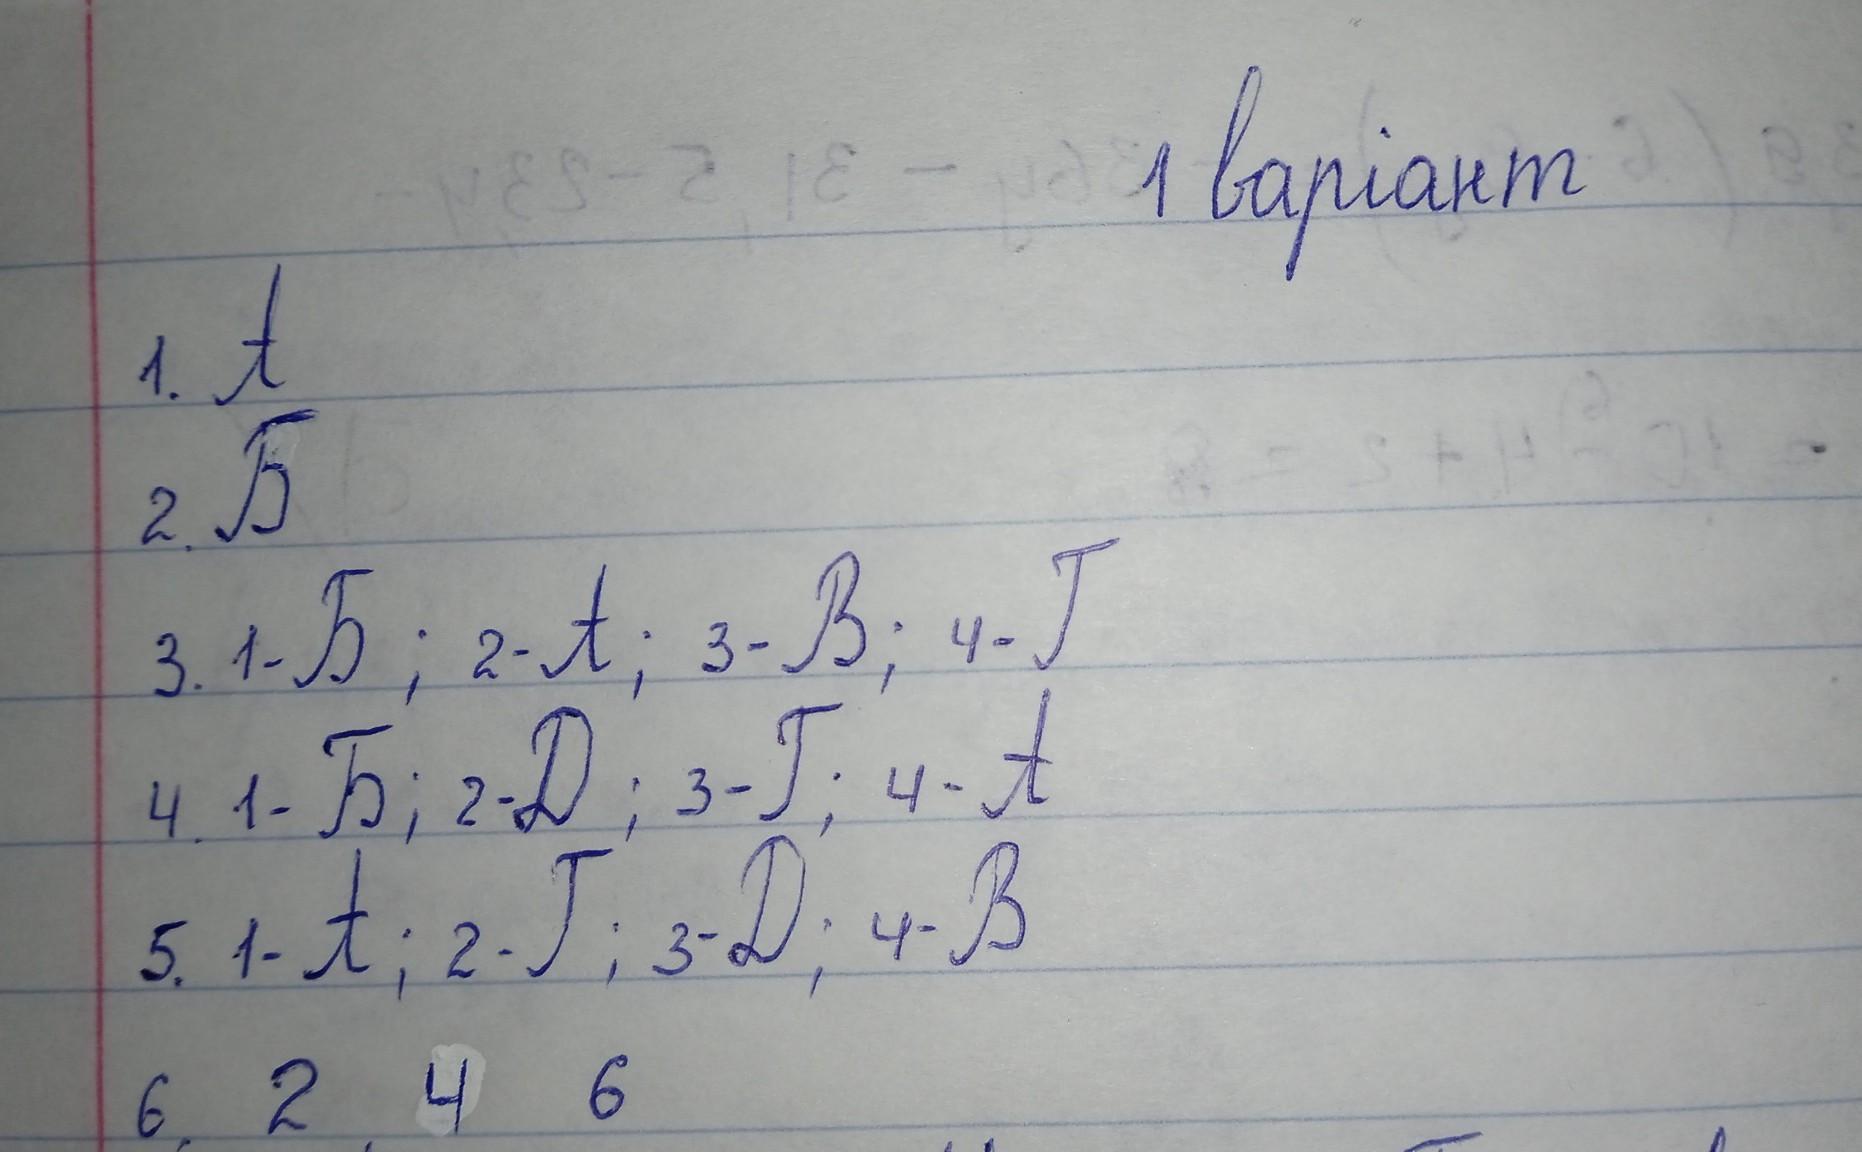 1 варіант
1. А
2. Б
3. 1-Б; 2-А; 3-В; 4-Г
4. 1-Б; 2-Д; 3-Г; 4-А
5. 1-А; 2-Г; 3-Д; 4-В
6. 2 4 6